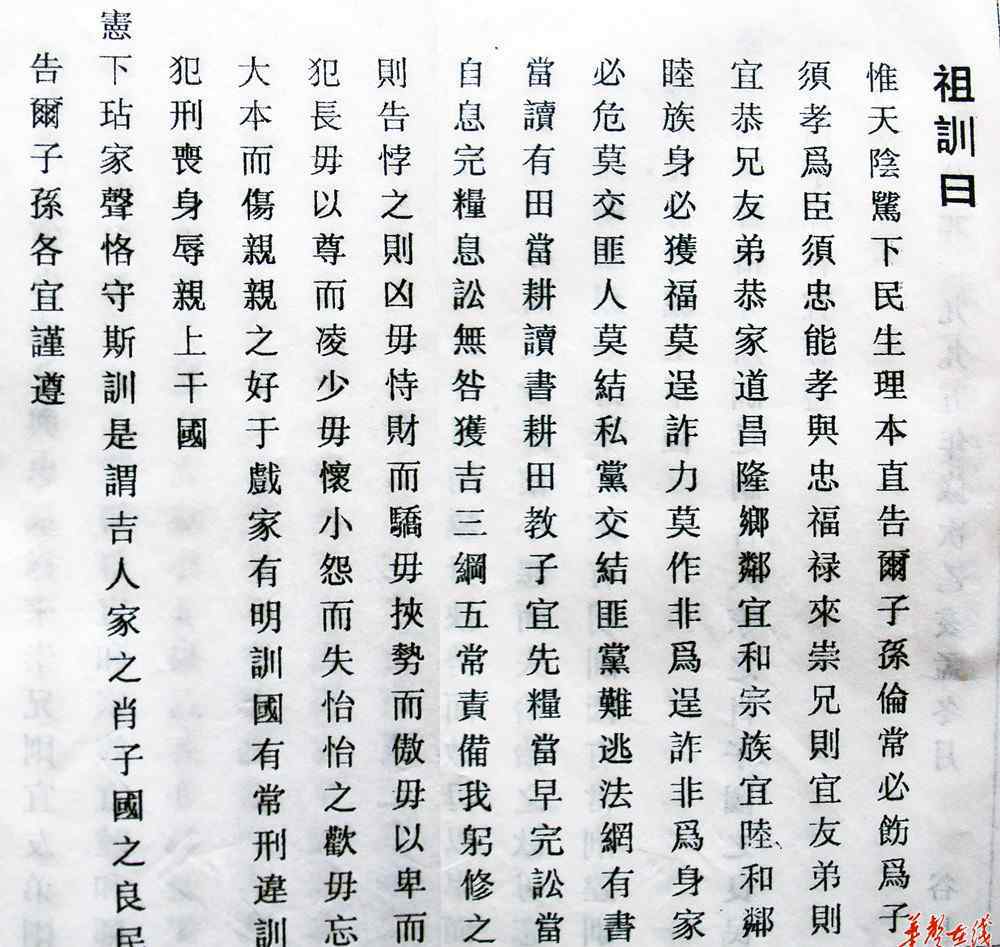 祖訓曰
惟天陰騭下民生理本直告爾子孫倫常必飭爲子
須孝爲臣須忠能孝與忠福禄來崇兄則宜友弟則
宜恭兄友弟恭家道昌隆鄉鄰宜和宗族宜陸和鄰
睦族身必獲福莫逞詐力莫作非爲逞詐非爲身家
必危莫交匪人莫結私黨交結匪黨難逃法網有書
當讀有田當耕讀書耕田教子宜先糧當早完訟當
自息完糧息訟無咎獲吉三綱五常責備我躬修之
則告悖之則凶毋恃財而驕毋挾勢而傲毋以卑而
犯長毋以尊而凌少毋懷小怨而失怡怡之歡毋忘
大本而傷親親之好于戲家有明訓國有常刑違訓
犯刑喪身辱親上干國
憲下玷家聲恪守斯訓是謂吉人家之肖子國之良民
告爾子孫各宜謹遵
華聲在线